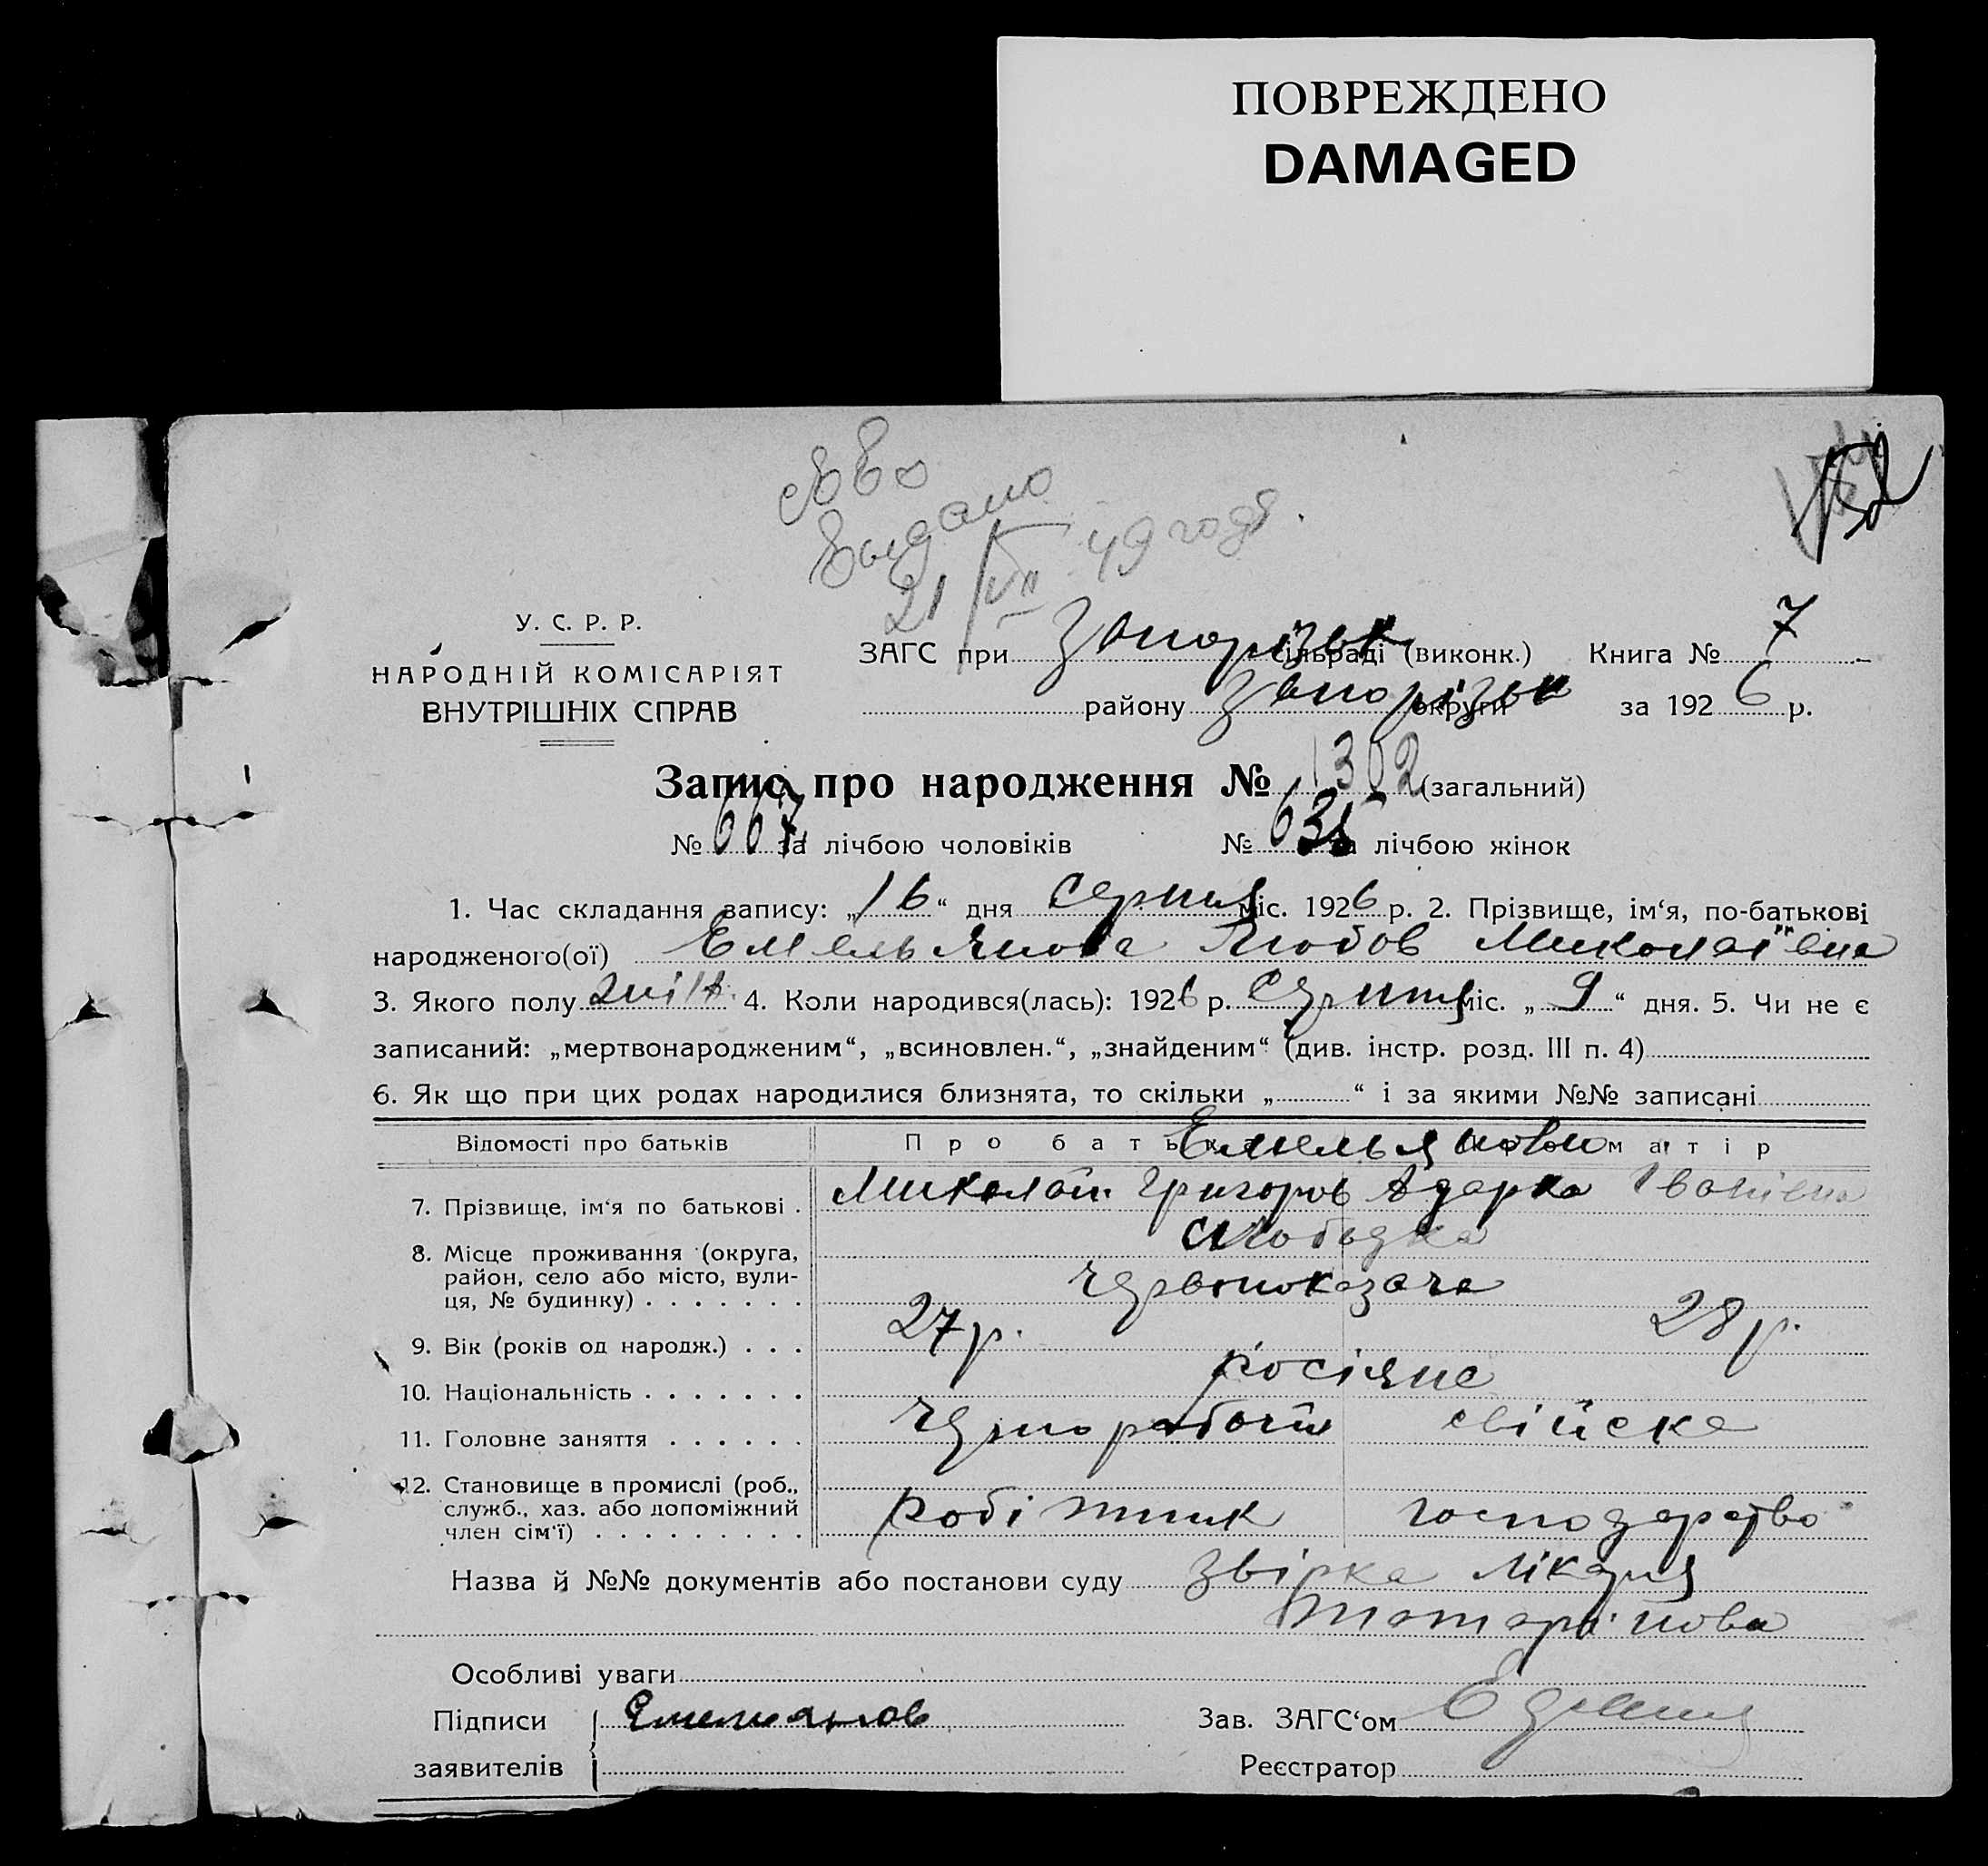 ПОВРЕЖДЕНО
DAMAGED
выдано
21/VII 49 года.
152
У. С. Р. Р.
НАРОДНІЙ КОМІСАРІЯТ
ВНУТРІШНІХ СПРАВ
ЗАГС при Запорізьк сільраді (виконк.) Книга № 7
району Запорізьк округи за 1926 р.
Запис про народження № 1302 (загальний)
№ 667 за лічбою чоловіків № 635 за лічбою жінок
1. Час складання запису: „16“ дня Серпня міс. 1926 р. 2. Прізвище, ім‘я, по-батькові
народженого(ої) Емельянова Любов Миколаївна
3. Якого полу жін. 4. Коли народився(лась): 1926 р. Серпня міс. „9“ дня. 5. Чи не є
записаний: „мертвонародженим“, „всиновлен.“, „знайденим“ (див. інстр. розд. III п. 4)
6. Як що при цих родах народилися близнята, то скільки „ “ і за якими №№ записані
Відомості про батьків Про батька Про матір
Емельянови
7. Прізвище, ім‘я по батькові . Миколай Григоров Одарка Іванівна
8. Місце проживання (округа, район, село або місто, вулиця, № будинку) . . . . . . . Слободка
Червонокозача
9. Вік (років од народж.) . . . 27 р. 28 р.
10. Національність . . . . . . . росіяне
11. Головне заняття . . . . . . чернорабочий свійске
12. Становище в промислі (роб., служб., хаз. або допоміжний член сім‘ї) . . . . . . . . . робітник господарство
Назва й №№ документів або постанови суду Звірка лікаря
Татарінова
Особливі уваги
Підписи Емельянов Зав. ЗАГС‘ом
заявителів Реєстратор